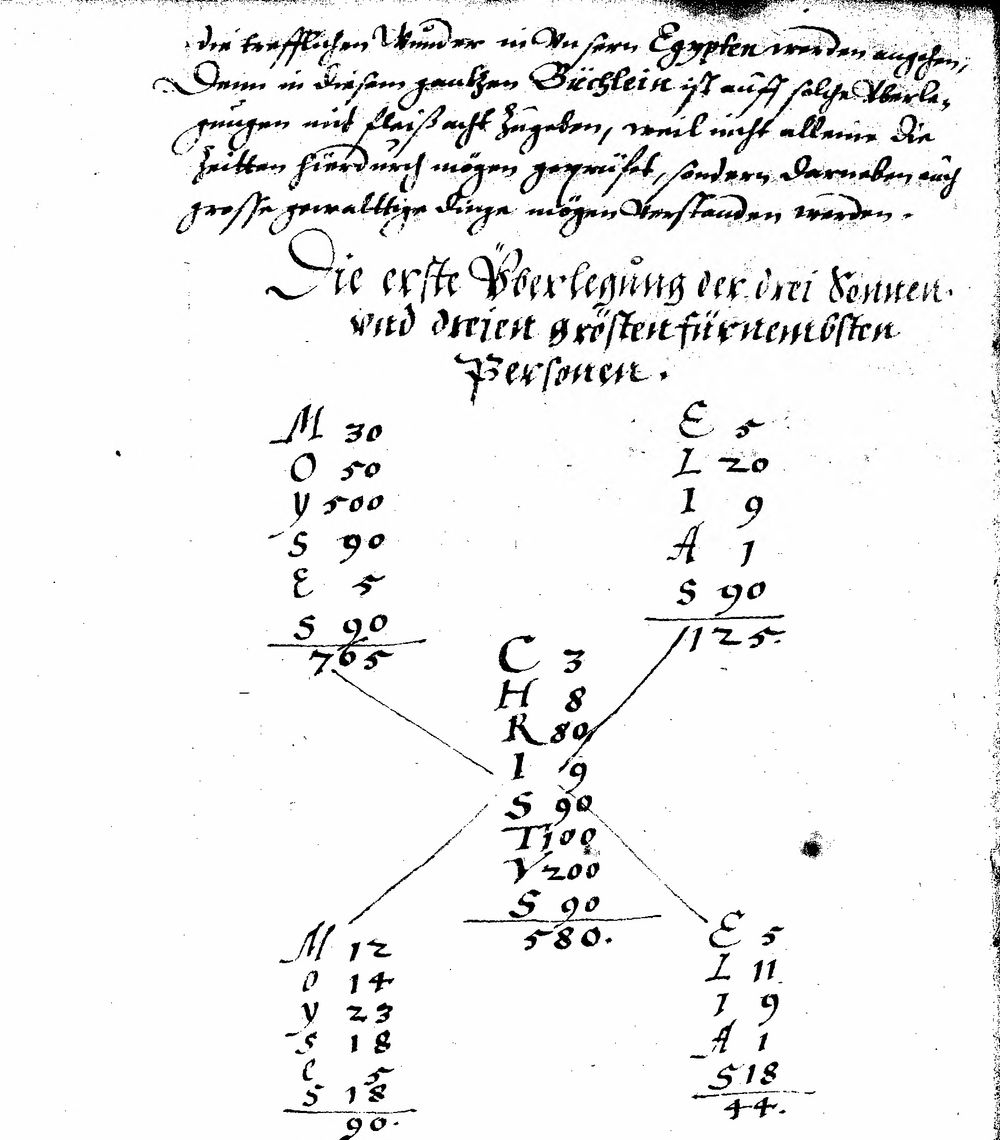 die trefflichen Wunder in Vnsern Egypten werden angehen,
Denn in diesem gantzen Büchlein ist auff solche Vberle-
gungen mit fleiß acht zugeben, weil nicht alleine die
Zeitten hierdurch mögen geprüfet, sondern darneben auch
grosse gewalttige dinge mögen Verstanden werden.
Die erste Vberlegung der drei Sonnen
vnd dreien grösten fürnembsten
Personen.
M 30
O 50
Y 500
S 90
E 5
S 90
765
E 5
L 20
I 9
A 1
S 90
125.
C 3
H 8
R 80
I 9
S 90
T 100
V 200
S 90
580.
M 12
O 14
Y 23
S 18
E 5
S 18
90.
E 5
L 11
I 9
A 1
S 18
44.